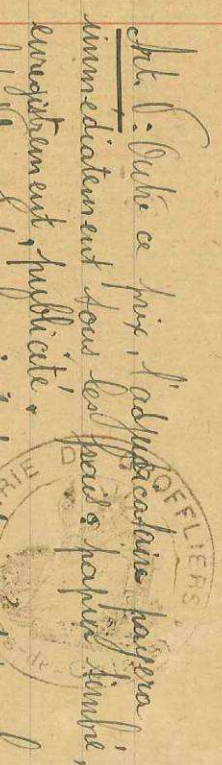 Art. V : Outre ce prix, l'adjudicataire payera
immédiatement tous les frais : papier timbré,
enregistrement, publicité.
RIE D OFFLIERS